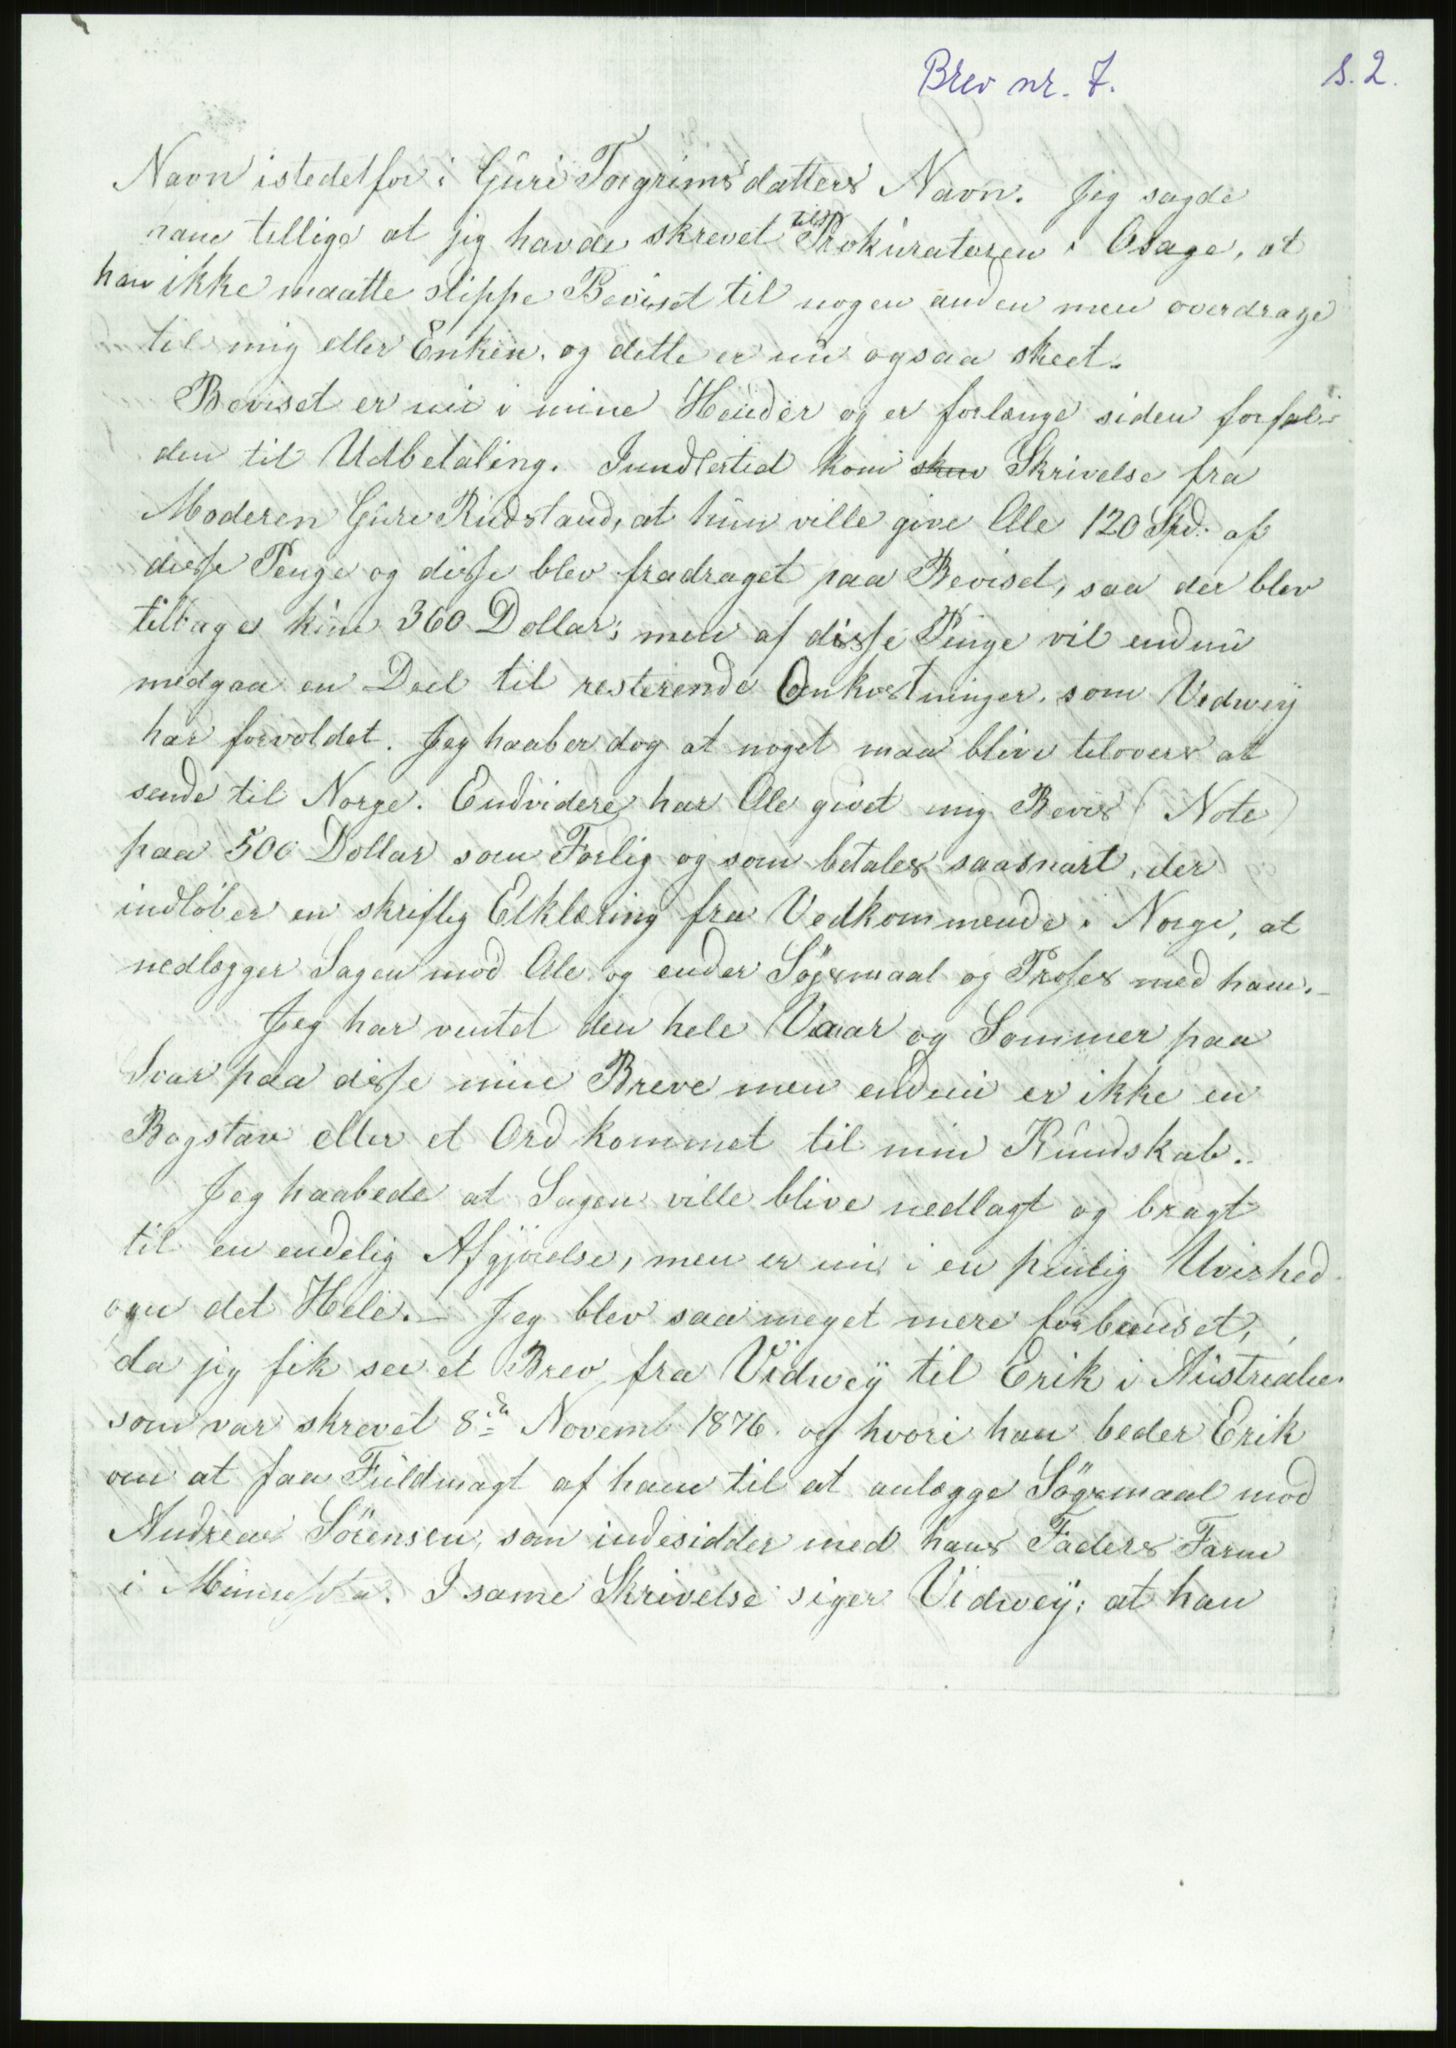 Brev nr. 7. S. 2.
Navn istedetfor i Guri Torgrimsdatters Navn. Jeg sagde
ham tillige at jeg havde skrevet til Prokuratoren i Osage, at
han ikke maatte slippe Beviset til nogen anden men overdrage
til mig eller Enken, og dette er nu ogsaa skeet.
Beviset er nu i mine Hænder og er forlænge siden forfal-
den til Udbetaling. Imidlertid kom Skrivelse fra
Moderen Guri Rudstand, at hun ville give Ole 120 Spd. af
disse Penge og disse blev fradraget paa Beviset, saa der blev
tilbage kun 360 Dollar; men af disse Penge vil endnu
medgaa en Deel til resterende Omkostninger, som Vedwey
har forvoldet. Jeg haaber dog at noget maa blive tilovers at
sende til Norge. Endvidere har Ole givet mig Bevis (Note)
paa 500 Dollar som Forlig og som betales saasnart der
indløber en skriftlig Elklæring fra Vedkommende i Norge, at
nedlægger Sagen mod Ole og ender Søgsmaal og Proses med ham.-
Jeg har ventet den hele Vaar og Sommer paa
Svar paa disse mine Breve men endnu er ikke en
Bogstav eller et Ord kommet til min Kundskab.
Jeg haabede at Sagen ville blive nedlagt og bragt
til en endelig Afgjørelse, men er nu i en pinlig Uvished
om det Hele.- Jeg blev saa meget mere forbauset,
da jeg fik see et Brev fra Vidwey til Erik i Australie
som var skrevet 8de Novemb 1876 og hvori han beder Erik
om at faa Fuldmagt af ham til at anlægge Søgsmaal mod
Andreas Sørensen, som indesidder med hans Faders Farm
i Minnesota. I same Skrivelse siger Vidwey: at han